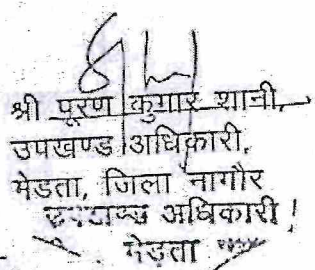 श्री पूरण कुमार शानी,
उपखण्ड अधिकारी,
मेडता, जिला नागौर
उपखण्ड अधिकारी
मेड़ता